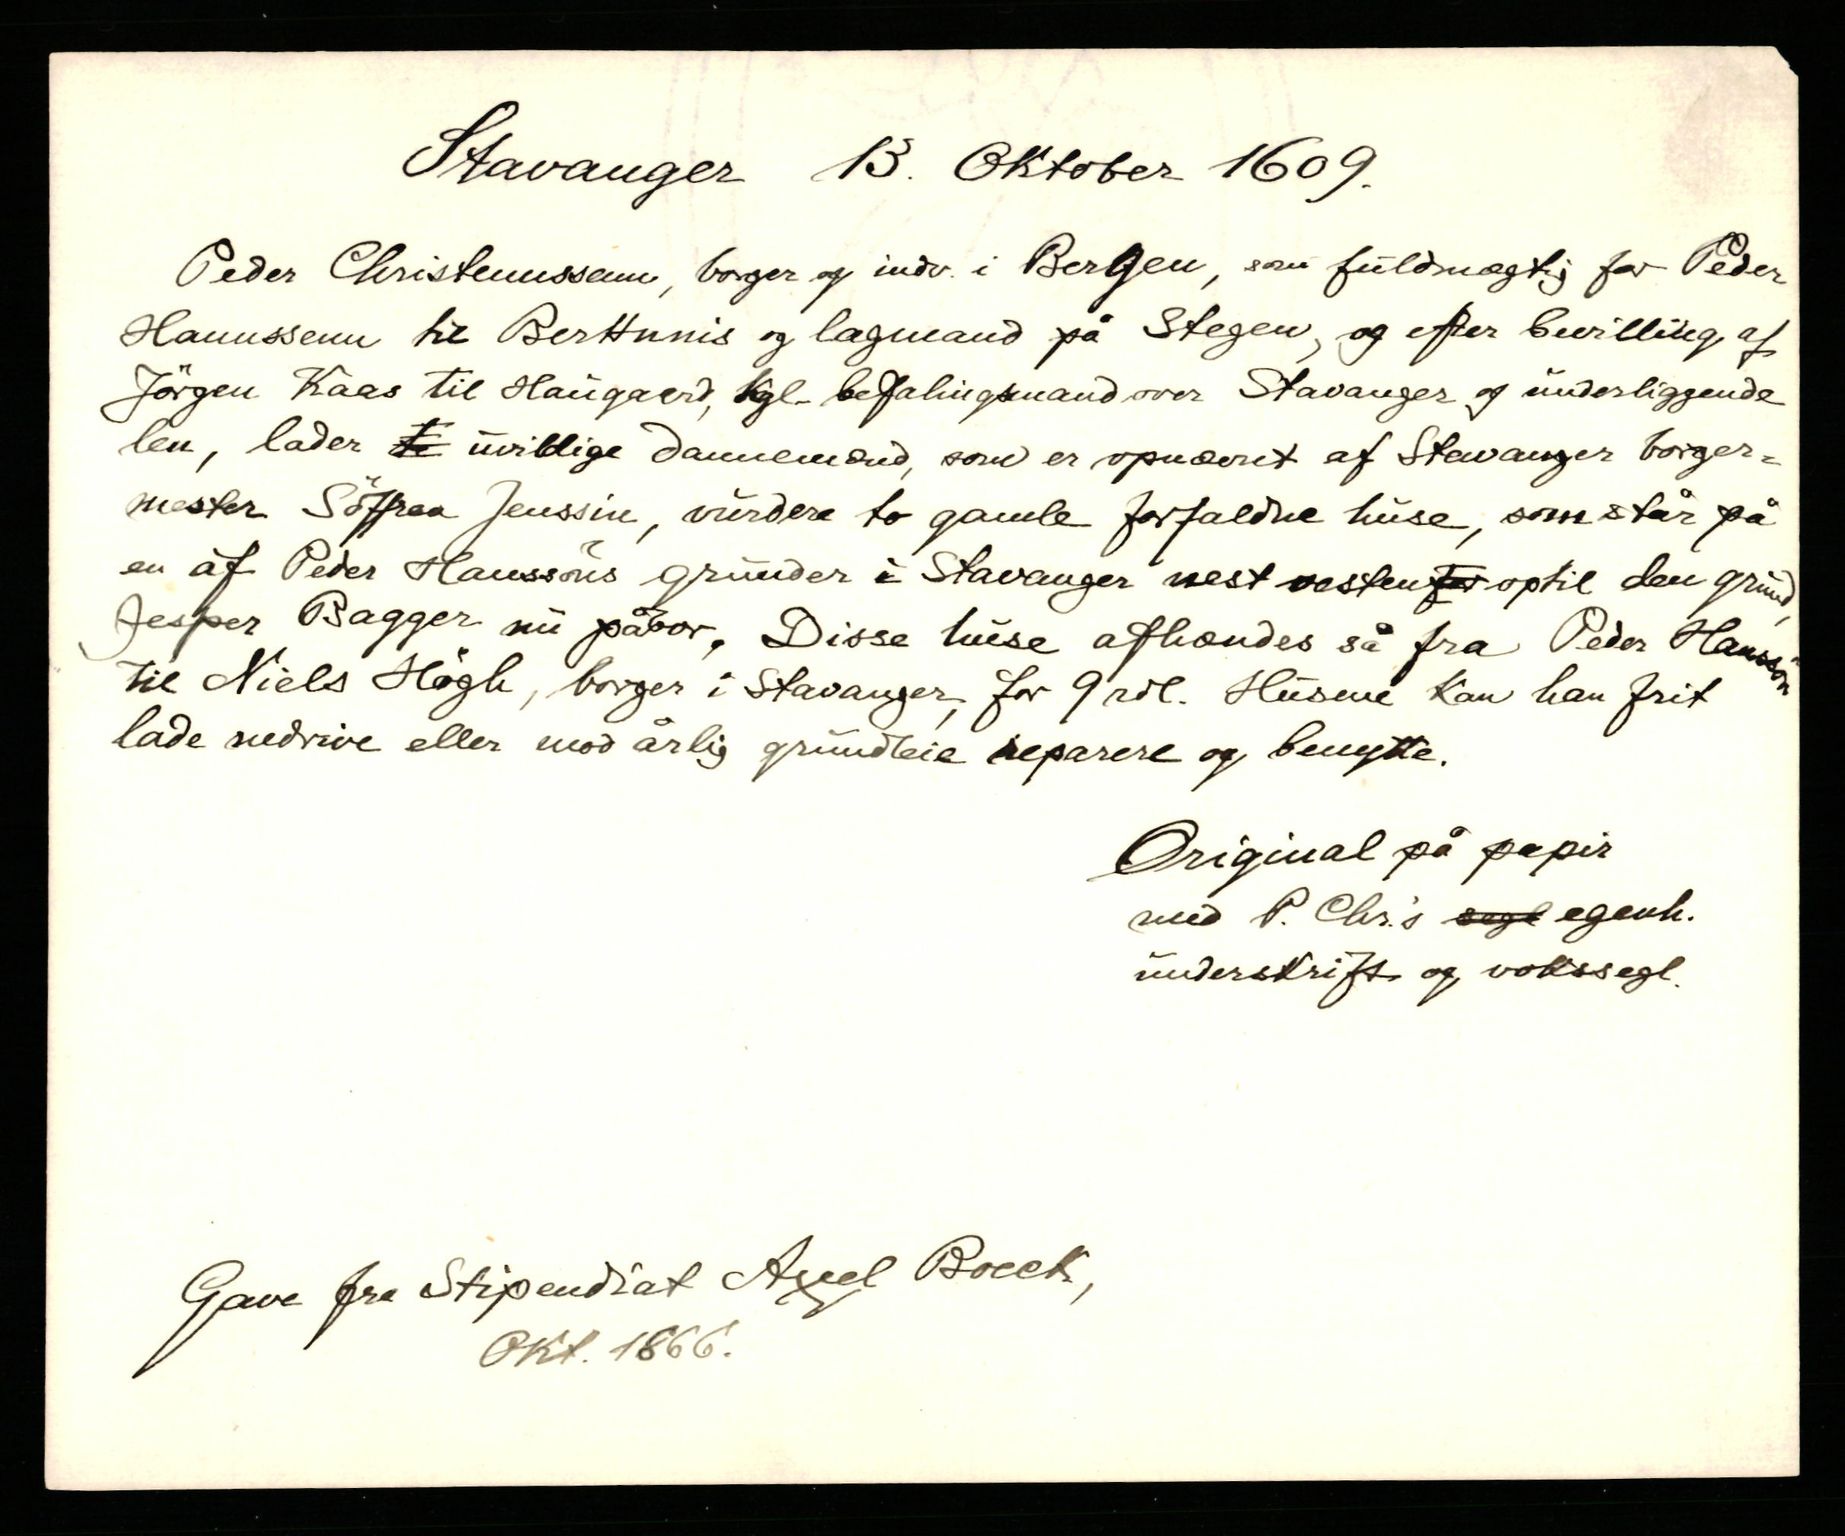 Stavanger 13. Oktober 1609.
Peder Christennssenn, borger og indv. i Bergen, som fuldmægtig for Peder
Hannssenn til Berttnnis og lagmand på Stegen, og efter bevilling af
Jörgen Kaas til Haugaard, kgl. befalingsmand over Stavanger og underliggende
len, lader uvildige dannemænd, som er opnævnt af Stavanger borger=
mester Söffren Jenssin, vurdere to gamle forfaldne huse, som står på
en af Peder Hanssöns grunder i Stavanger nest vesten optil den grund,
Jesper Bagger nu påbor. Disse huse afhændes så fra Peder Hanssön
til Niels Högh, borger i Stavanger, for 9 rdl. Husene kan han frit
lade nedrive eller mod årlig grundleie reparere og benytte.
Original på papir
med P. Chr.'s egenh.
underskrift og vokssegl.
Gave fra Stipendiat Axel Boeck,
Okt. 1866.